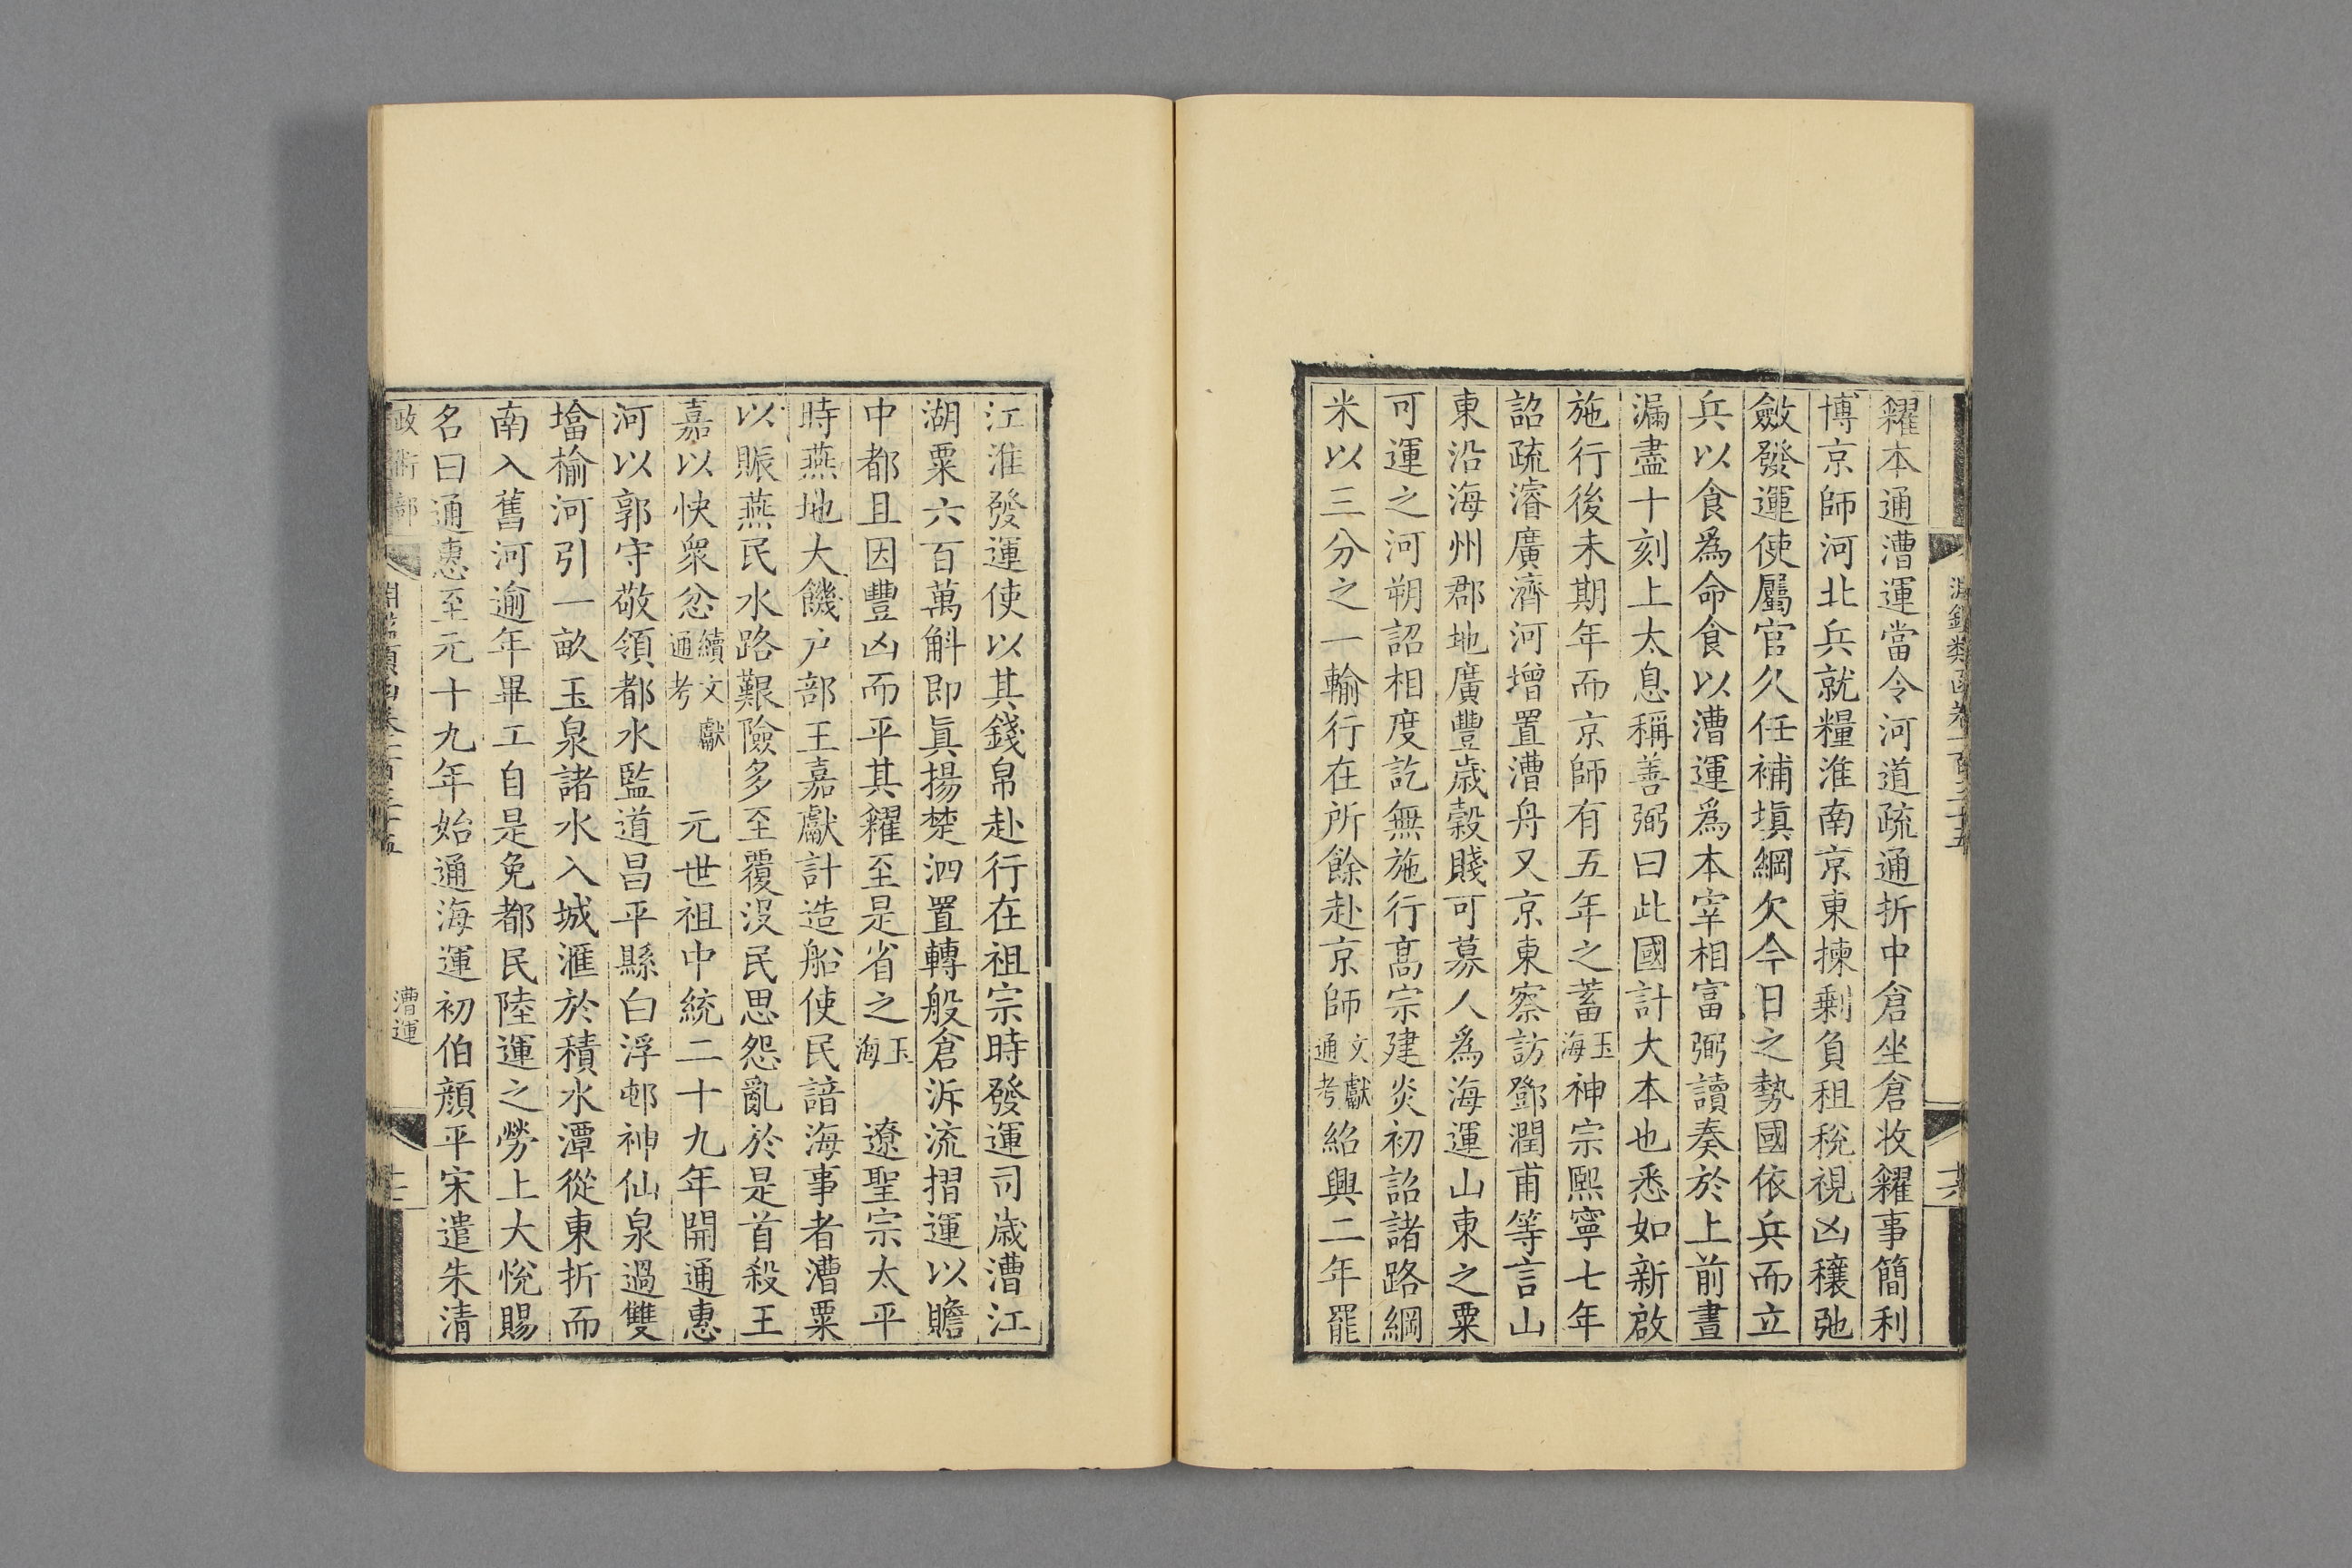 糴本通漕運當令河道疏通折中倉坐倉收糴事簡利
博京師河北兵就糧淮南京東揀剩負租稅視凶穰弛
斂發運使屬官久任補塡綱欠今日之勢國依兵而立
兵以食爲命食以漕運爲本宰相富弼讀奏於上前晝
漏盡十刻上太息稱善弼曰此國計大本也悉如新啟
施行後未期年而京師有五年之蓄玉海神宗熙寧七年
詔疏濬廣濟河增置漕舟又京東察訪鄧潤甫等言山
東沿海州郡地廣豐歲榖賤可募人爲海運山東之粟
可運之河朔詔相度訖無施行高宗建炎初詔諸路綱
米以三分之一輸行在所餘赴京師文獻通考紹興二年罷
江淮發運使以其錢帛赴行在祖宗時發運司歲漕江
湖粟六百萬斛即眞揚楚泗置轉般倉泝流摺運以贍
中都且因豐凶而平其糴至是省之玉海 遼聖宗太平
時燕地大饑戶部王嘉獻計造船使民諳海事者漕粟
以賑燕民水路艱險多至覆沒民思怨亂於是首殺王
嘉以快衆忿續文獻通考 元世祖中統二十九年開通惠
河以郭守敬領都水監道昌平縣白浮邨神仙泉過雙
塔榆河引一畝玉泉諸水入城滙於積水潭從東折而
南入舊河逾年畢工自是免都民陸運之勞上大悅賜
名曰通惠至元十九年始通海運初伯顏平宋遣朱清
政術部
漕運